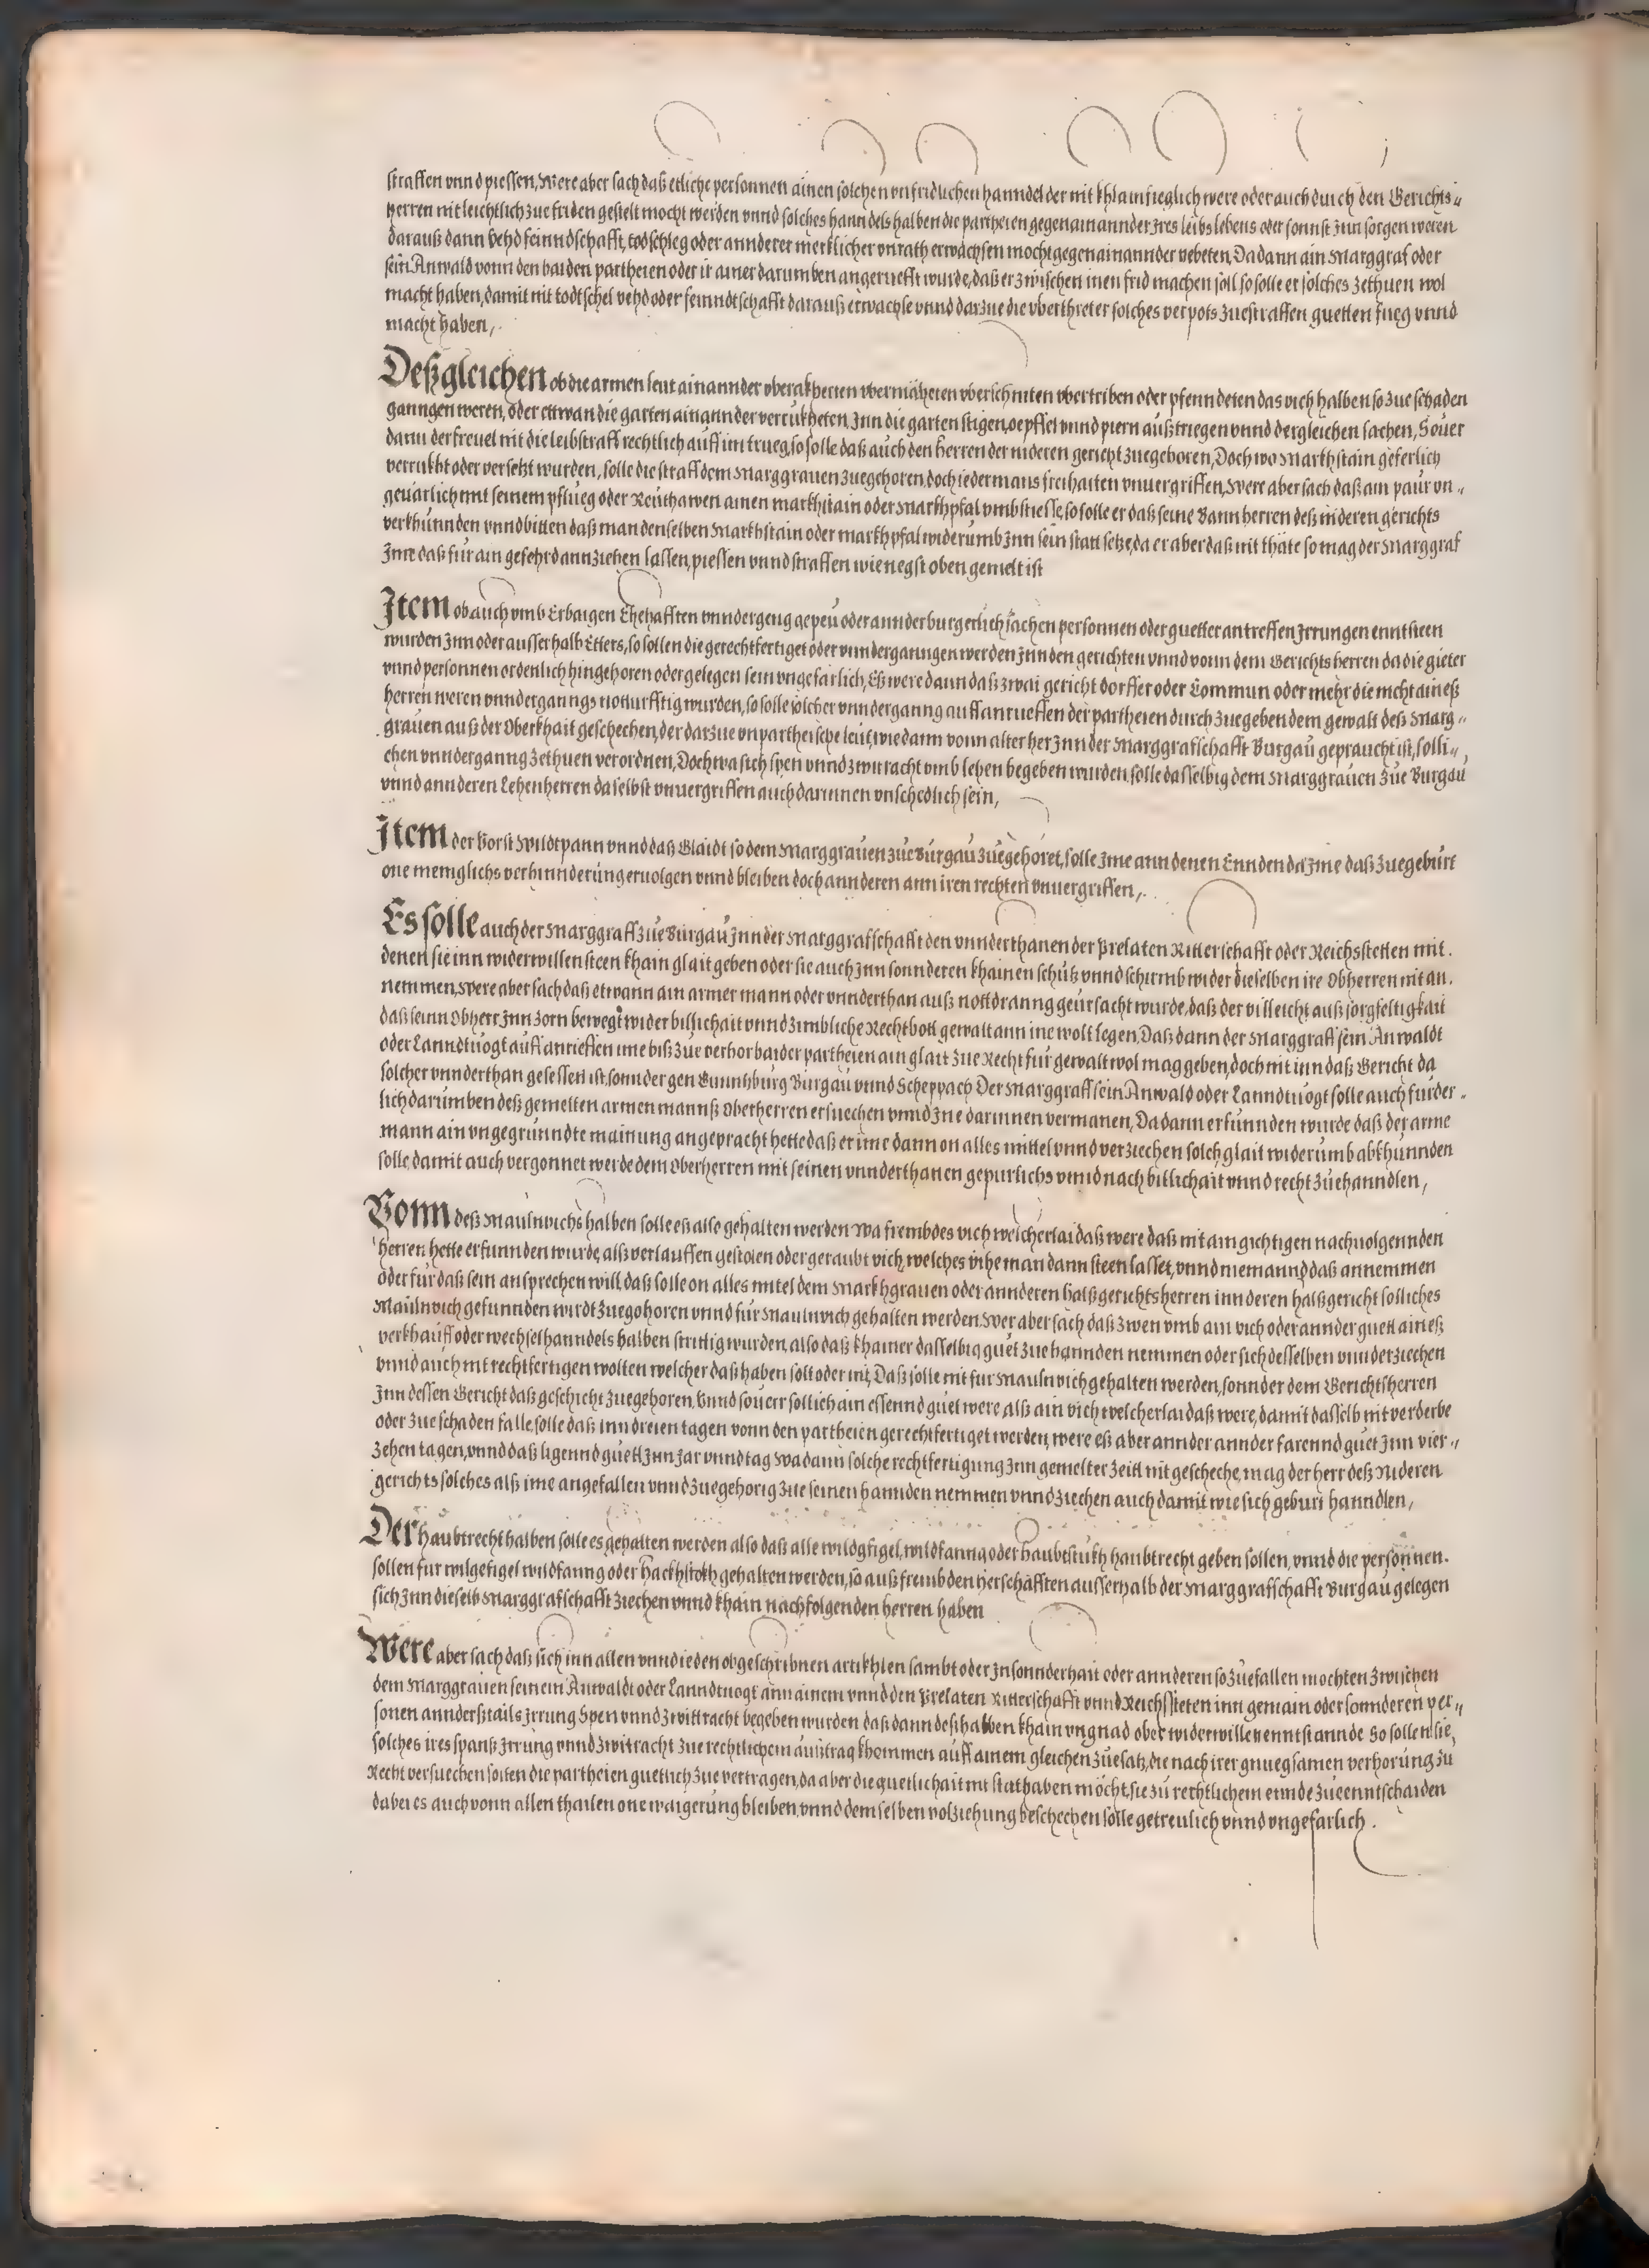 straffen vnnd piessen, Were aber sach daß etliche personnen ainen solchen vnfridlichen hanndel der nit khlainfieglich were oder auch durch den Gerichts„
herren nit leichtlich zue friden gestelt mocht werden vnnd solches hanndels halben die partheien gegen ainannder Jres leibs lebens oder sonnst Jnn sorgen weren
darauß dann vehd feinndschafft, todschleg oder annderer mercklicher vnrath erwachsen mocht gegen ainannder vebeten, Da dann ain Marggraf oder
sein Anwald vonn den baiden partheien oder ir ainer darumben angeruefft wurde, daß er zwischen inen frid machen soll so solle er solches zethuen wol
macht haben, damit nit todtschel vehd oder feinndtschafft darauß erwachse vnnd darzue die vberthreter solches verpots zuestraffen guetten fueg vnnd
macht haben,.
Deßgleichen ob die armen leut ainannder vberakherten vbermäheten vberschniten vbertriben oder pfenndeten das vich halben so zue schaden
ganngen weren, oder ettwan die garten ainannder verrukheten, Jnn die garten stigen, oepffel vnnd piern außtriegen vnnd dergleichen sachen, Souer
dann der freuel nit die leibstraff rechtlich auff im trueg, so solle daß auch den herren der nideren gericht zuegehoren, Doch wo Markhstain geferlich
verrukht oder versetzt wurden, solle die straff dem Marggrauen zuegehoren, doch iedermans freihaiten vnuergriffen, Were aber sach daß ain paur vn„
geuarlich mit seinem pflueg oder Reuthawen ainen markhstain oder Markhpfal vmbstiesse, so solle er daß seine Bannherren deß nideren gerichts
verkhunnden vnnd bitten daß man denselben Markhstain oder markhpfal widerumb Jnn sein statt setze, da er aber daß nit thäte so mag der Marggraf
Jnne daß für ain gefehrd annziehen lassen, piessen vnnd straffen wie negst oben gemelt ist
Item ob auch vmb Erbaigen Ehehafften vnndergeng gepeu oder annder burgerlich sachen personnen oder guetter antreffen Jrrungen enntsteen
wurden Jnn oder ausserhalb Etters, so sollen die gerechtfertiget oder vnnderganngen werden Jnn den gerichten vnnd vonn dem Gerichtsherren da die gieter
vnnd personnen ordenlich hingehoren oder gelegen sein vngefarlich, Eß were dann daß zwai gericht dorffer oder Commun oder mehr die nicht aineß
herren weren vnnderganngs notturfftig wurden, so solle solcher vnnderganng auff anrueffen der partheien durch zuegebendem gewalt deß Marg„
grauen auß der Oberkhait geschechen, der darzue vnpartheische leut, wie dann vonn alter her Jnn der Marggrafschafft Burgau gepraucht ist, solli„
chen vnnderganng zethuen verordnen, Doch wa sich spen vnnd zwitracht vmb lehen begeben wurden, solle dasselbig dem Marggrauen zue Burgau
vnnd annderen Lehenherren daselbst vnuergriffen auch darinnen vnschedlich sein,
Item der Vorst Wildtpann vnnd daß Glaidt so dem Marggrauen zue Burgau zuegehöret, solle Jme ann denen Ennden da Jme daß zuegebürt
one meniglichs verhinnderung eruolgen vnnd bleiben doch annderen ann iren rechten vnuergriffen,.
Es solle auch der Marggraff zue Burgau Jnn der Marggrafschafft den vnnderthanen der Prelaten Ritterschafft oder Reichsstetten mit
denen sie inn widerwillen steen khain glait geben oder sie auch Jnn sonnderen khainen schutz vnnd schirmb wider dieselben ire Obherren nit an.
nemmen, Were aber sach daß etwann ain armer mann oder vnnderthan auß nottdranng geursacht wurde, daß der villeicht auß sorgfeltigkait
daß seinn Obherr Jnn zorn bewegt wider billichait vnnd zimbliche Rechtbott gewalt ann ine wolt legen, Daß dann der Marggraff sein Anwaldt
oder Lanndtuogt auff anrieffen ime biß zue verhor baider partheien ain glait zue Recht fur gewalt wol mag geben, doch nit inn daß Gericht da
solcher vnnderthan gesessen ist, sonnder gen Gunntzburg Burgau vnnd Scheppach Der Marggraff sein Anwald oder Lanndtuogt solle auch furder„
lich darumben deß gemelten armen mannß Oberherren ersuechen vnnd Jne darinnen vermanen, Da dann erfunnden wurde daß der arme
mann ain vngegrunndte mainung angepracht hette daß er ime dann on alles mittel vnnd verziechen solch glait widerumb abkhunnden
solle, damit auch vergonnet werde dem Oberherren mit seinen vnnderthanen gepurlichs vnnd nach billichait vnnd recht zuehanndlen,
Vonn deß Maulvichs halben solle eß also gehalten werden wa frembdes vich welcherlai daß were daß nit ain gichtigen nachuolgennden
herren hette erfunnden wurde, alß verlauffen gestolen oder geraubt vich, welches vihe man dann steen lasset, vnnd niemannd daß annemmen
oder für daß sein ansprechen will, daß solle on alles mitel dem Markhgrauen oder annderen halßgerichtsherren inn deren halßgericht solliches
Maulvich gefunnden wirdt zuegohoren vnnd für Maulvich gehalten werden, Wer aber sach daß zwen vmb ain vich oder annder guett aineß
verkhauff oder wechselhanndels halben strittig wurden, also daß khainer dasselbig guet zue hannden nemmen oder sich desselben vnnderziechen
vnnd auch nit rechtfertigen wolten welcher daß haben solt oder nit, Daß solle nit fur Maulvich gehalten werden, sonnder dem Gerichtsherren
Jnn dessen Gericht daß geschicht zuegehoren, Vnnd souerr sollich ain essennd guet were alß ain vich welcherlai daß were, damit dasselb nit verderbe
oder zue schaden falle, solle daß inn dreien tagen vonn den partheien gerechtfertiget werden, were eß aber annder annder farennd guet Jnn vier„
zehen tagen, vnnd daß ligennd guett Jnn Jar vnnd tag Wa dann solche rechtfertigung Jnn gemelter zeitt nit gescheche, mag der herr deß Nideren
gerichts solches alß ime angefallen vnnd zuegehorig zue seinen hannden nemmen vnnd ziechen auch damit wie sich geburt hanndlen,
Der haubtrecht halben solle es gehalten werden also daß alle wildgfigel, wildfanng oder haubtstukh haubtrecht geben sollen, vnnd die personnen.
sollen fur wilgefigel wildfanng oder hackhstokh gehalten werden, so auß frembden herschafften ausserhalb der Marggrafschafft Burgau gelegen
sich Jnn dieselb Marggrafschafft ziechen vnnd khain nachfolgenden herren haben
Were aber sach daß sich inn allen vnnd ieden obgeschribnen artikhlen sambt oder Jnsonnderhait oder annderen so zuefallen mochten zwischen
dem Marggrauen seinem Anwaldt oder Lanndtuogt ann ainem vnnd den Prelaten Ritterschafft vnnd Reichssteten inn gemain oder sonnderen per„
sonen annderßtails Jrrung Spen vnnd zwittracht begeben wurden daß dann deßhalben khain vngnad ober widerwillen enntstannde So sollen sie,
solches ires spanß Jrrung vnnd zwitracht zue rechtlichem außtrag khommen auff ainem gleichen zuesatz, die nach irer gnuegsamen verhorung zu
Recht versuechen solten die partheien guetlich zue vertragen, da aber die guetlichait nit stat haben möcht, sie zu rechtlichem ennde zueenntschaiden
dabei es auch vonn allen thailen one waigerung bleiben, vnnd demselben volziehung beschechen solle getreulich vnnd vngefarlich.